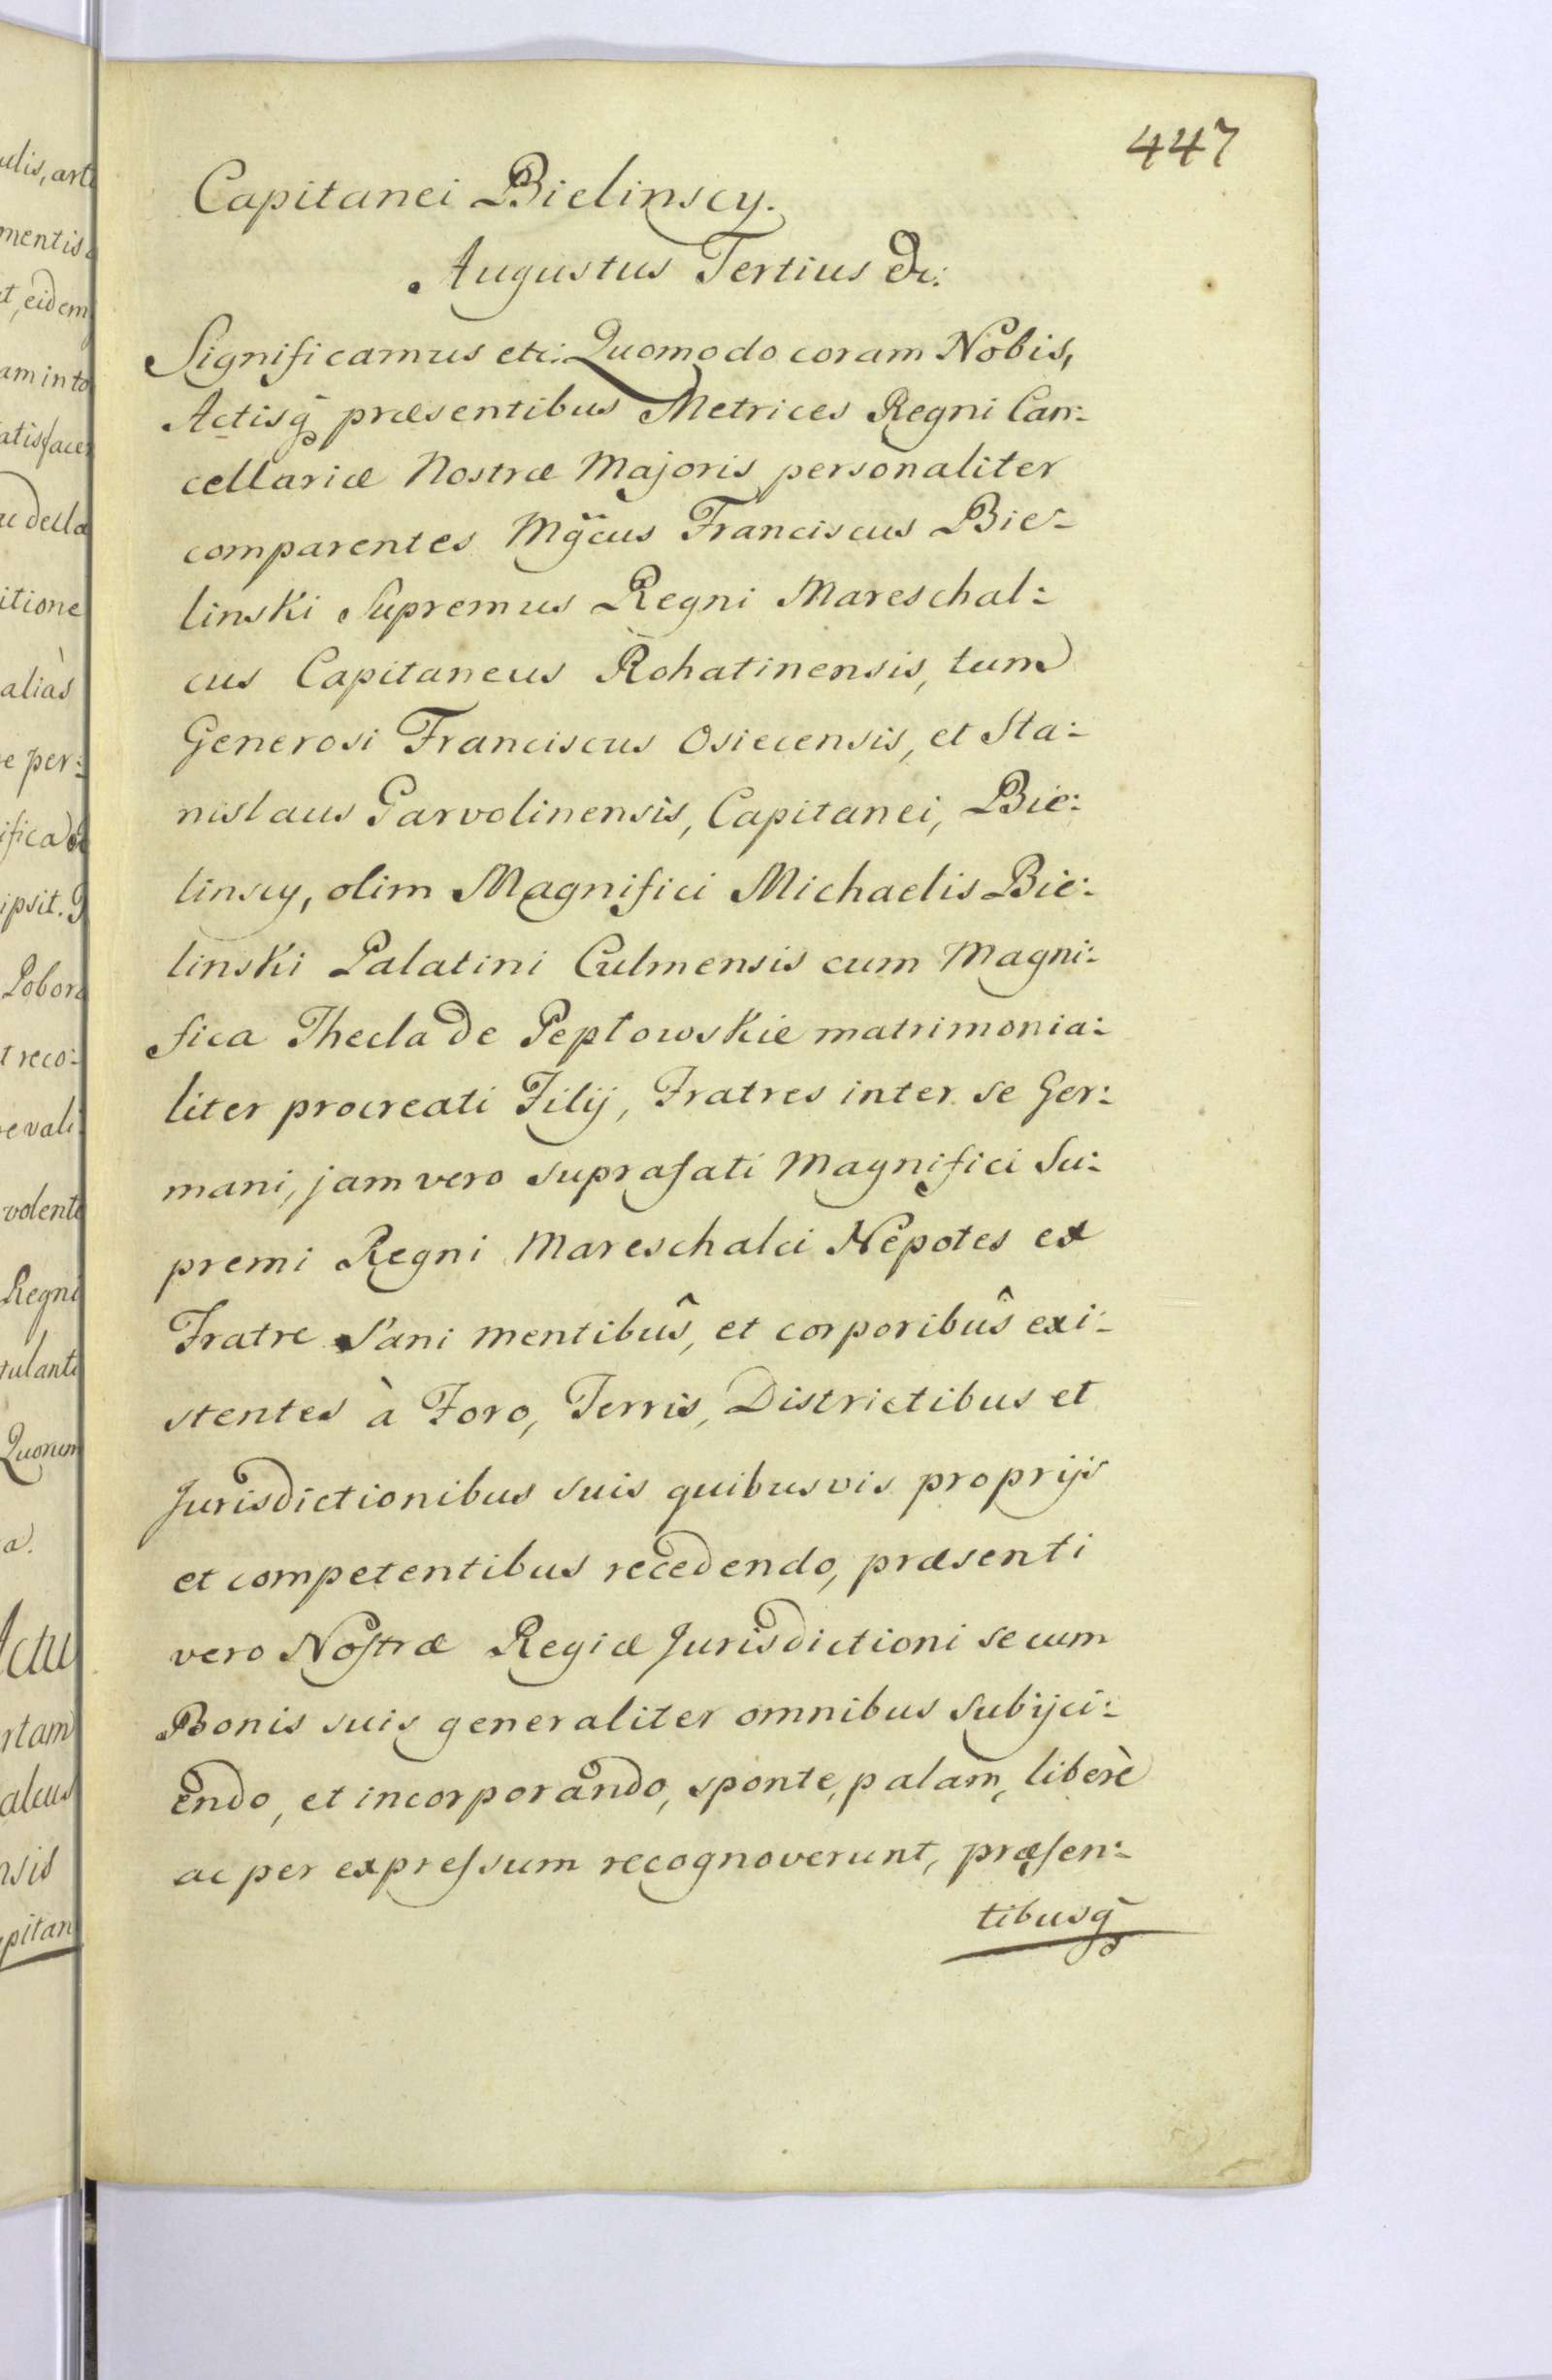 447
Capitanei Bielinscy.
Augustus Tertius &c:
Significamus etc: Quomodo coram Nobis,
Actisq̃ præsentibus Metrices Regni Can:
cellariæ Nostræ Majoris personaliter
comparentes Mg̃cus Franciscus Bie-
linski Supremus Regni Mareschal:
cus Capitaneus Rohatinensis, tum
Generosi Franciscus Osiecensis, et Sta:
nislaus Garvolinensis, Capitanei, Bie:
linscy, olim Magnifici Michaelis Bie:
linski Palatini Culmensis cum Magni:
fica Thecla de Peptowskie matrimonia:
liter procreati Filij, Fratres inter se Ger:
mani, jam vero suprafati Magnifici Su:
premi Regni Mareschalci Nepotes ex
Fratre Sani mentibûs, et corporibûs exi-
stentes à Foro, Terris, Districtibus et
Jurisdictionibus suis quibusvis proprijs
et competentibus recedendo, præsenti
vero Nostræ Regiæ Jurisdictioni se cum
Bonis suis generaliter omnibus subijci:
endo, et incorporando, sponte, palam, liberè
ac per expressum recognoverunt, præsen:
tibusq̃